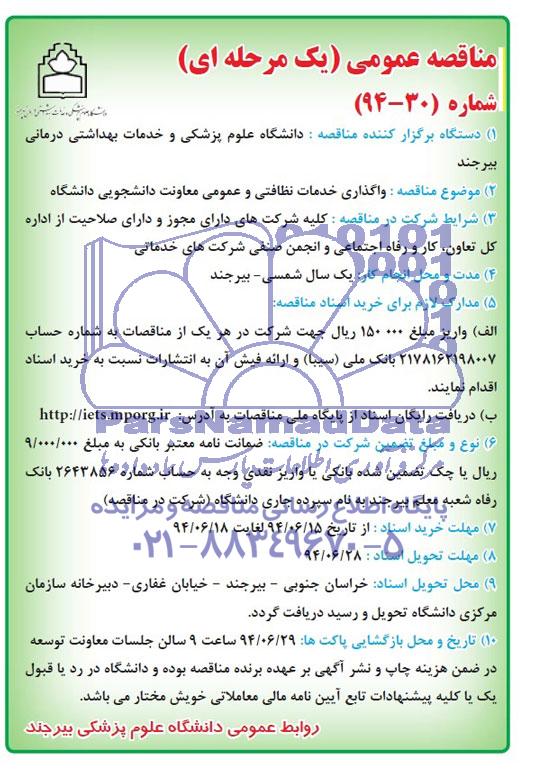 مناقصه عمومی (یک مرحله ای)
شماره (۳۰-۹۴)
۱) دستگاه برگزار کننده مناقصه : دانشگاه علوم پزشکی و خدمات بهداشتی درمانی
بیرجند
۲) موضوع مناقصه : واگذاری خدمات نظافتی و عمومی معاونت دانشجویی دانشگاه
۳) شرایط شرکت در مناقصه : کلیه شرکت های دارای مجوز و دارای صلاحیت از اداره
کل تعاون، کار و رفاه اجتماعی و انجمن صنفی شرکت های خدماتی
۴) مدت و محل انجام کار: یک سال شمسی- بیرجند
۵) مدارک لازم برای خرید اسناد مناقصه:
الف) واریز مبلغ ۱۵۰ ۰۰۰ ریال جهت شرکت در هر یک از مناقصات به شماره حساب
۲۱۷۸۱۶۲۱۹۸۰۰۷ بانک ملی (سیبا) و ارائه فیش آن به انتشارات نسبت به خرید اسناد
اقدام نمایند.
ب) دریافت رایگان اسناد از پایگاه ملی مناقصات به آدرس: http://iets.mporg.ir
ParsNamadData
۶) نوع و مبلغ تضمین شرکت در مناقصه: ضمانت نامه معتبر بانکی به مبلغ ۹/۰۰۰/۰۰۰
ریال یا چک تضمین شده بانکی یا واریز نقدی وجه به حساب شماره ۲۶۴۳۸۵۶ بانک
رفاه شعبه معلم بیرجند به نام سپرده جاری دانشگاه (شرکت در مناقصه)
پایگاه اطلاع رسانی مناقصه و مزایده
۷) مهلت خرید اسناد : از تاریخ ۹۴/۰۶/۱۵ لغایت ۹۴/۰۶/۱۸
۰۲۱-۸۸۳۴۹۶۷۰-۵
۸) مهلت تحویل اسناد : ۹۴/۰۶/۲۸
۹) محل تحویل اسناد: خراسان جنوبی - بیرجند - خیابان غفاری- دبیرخانه سازمان
مرکزی دانشگاه تحویل و رسید دریافت گردد.
۱۰) تاریخ و محل بازگشایی پاکت ها: ۹۴/۰۶/۲۹ ساعت ۹ سالن جلسات معاونت توسعه
در ضمن هزینه چاپ و نشر آگهی بر عهده برنده مناقصه بوده و دانشگاه در رد یا قبول
یک یا کلیه پیشنهادات تابع آیین نامه مالی معاملاتی خویش مختار می باشد.
روابط عمومی دانشگاه علوم پزشکی بیرجند